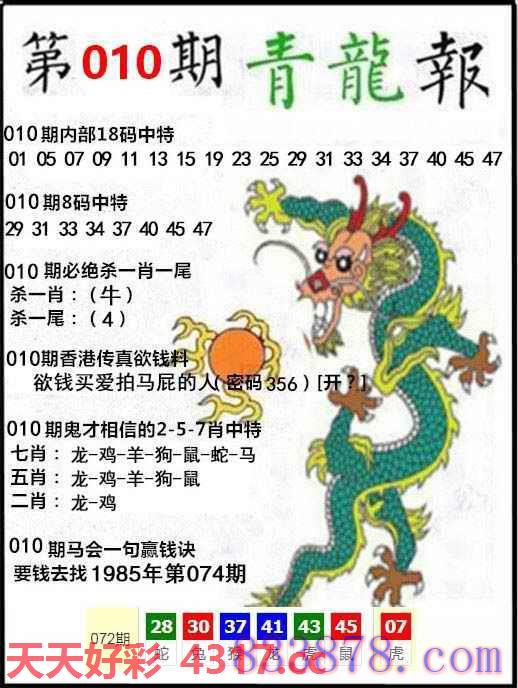 第010期青龍報
010期内部18码中特
01 05 07 09 11 13 15 19 23 25 29 31 33 34 37 40 45 47
010期8码中特
29 31 33 34 37 40 45 47
010期必绝杀一肖一尾
杀一肖：（牛）
杀一尾：（4）
010期香港传真欲钱料
欲钱买爱拍马屁的人（密码356）[开？]
010期鬼才相信的2-5-7肖中特
七肖：龙-鸡-羊-狗-鼠-蛇-马
五肖：龙-鸡-羊-狗-鼠
二肖：龙-鸡
010期马会一句赢钱诀
要钱去找1985年第074期
072期 28 30 37 41 43 45 07
蛇 兔 猴 龙 虎 鼠 虎
天天好彩 4317.cc
878.com